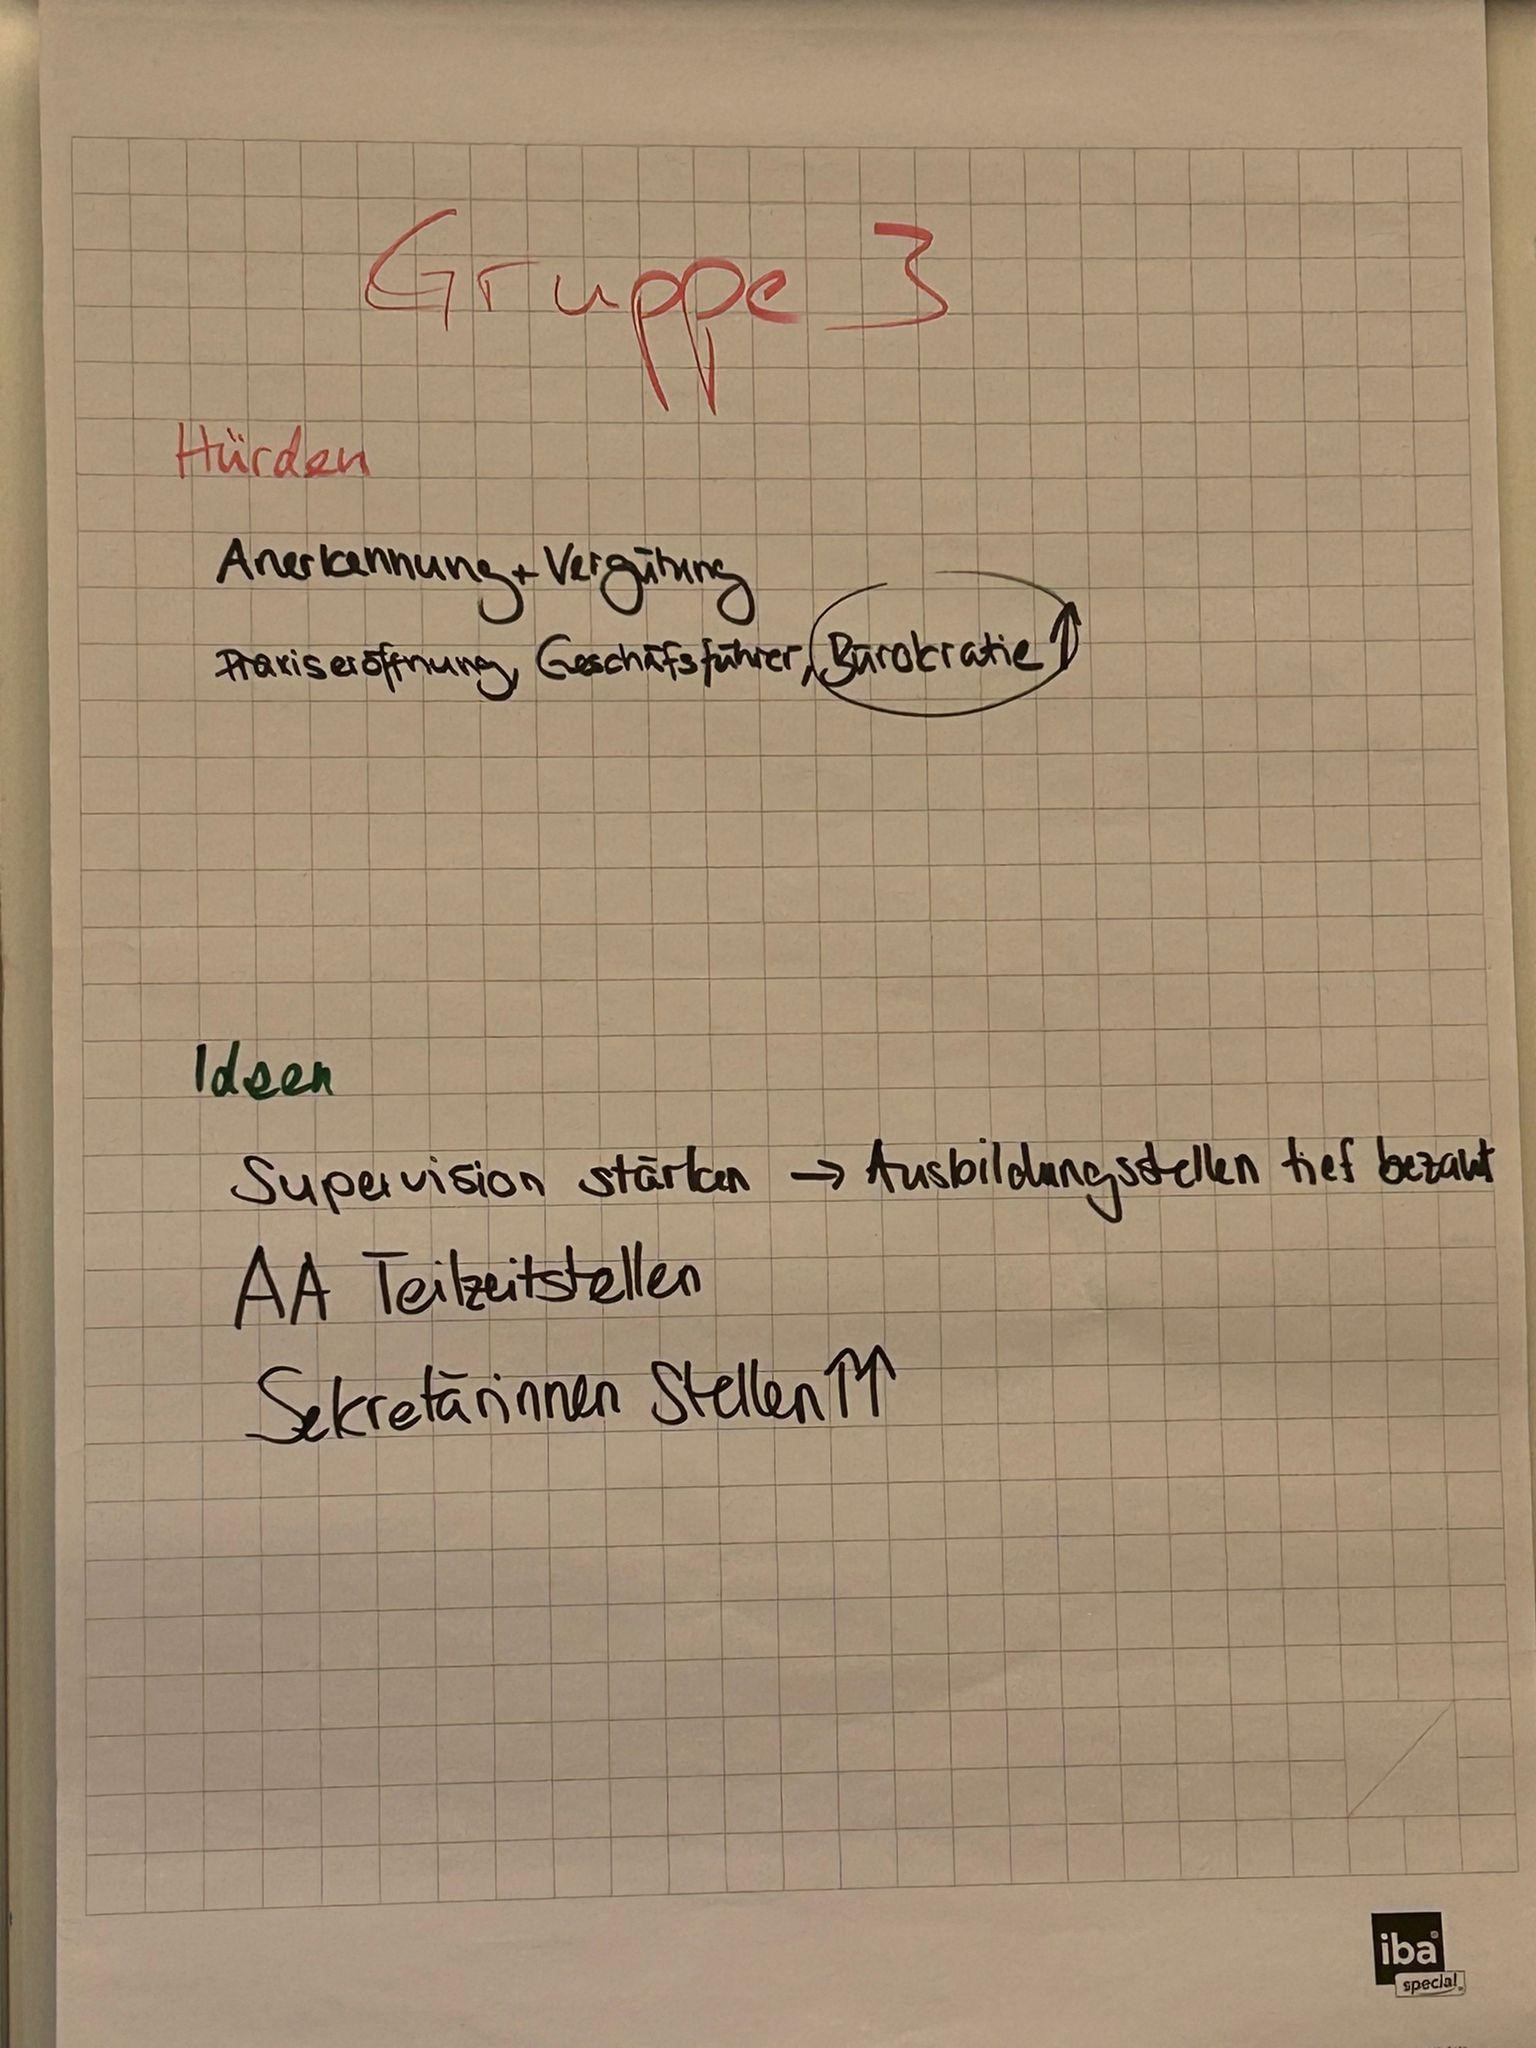 Gruppe 3
Hürden
Anerkennung + Vergütung
Praxiseröffnung, Geschäfsführer, Bürokratie ↑
Ideen
Supervision stärken → Ausbildungsstellen tief bezahlt
AA Teilzeitstellen
Sekretärinnen Stellen ↑↑
iba
special